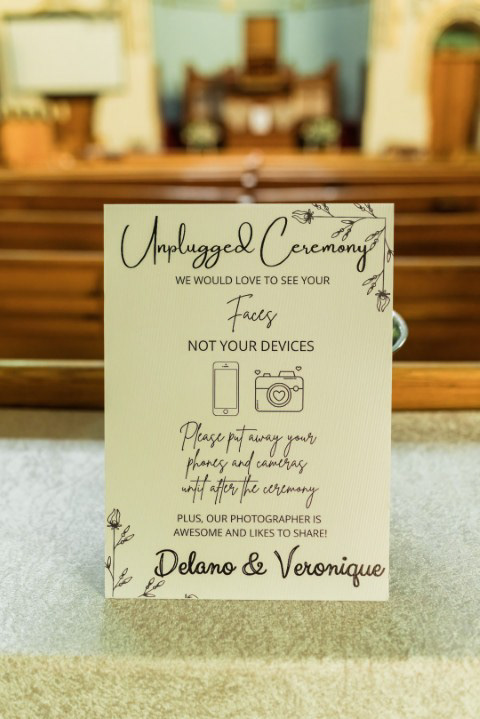 Unplugged Ceremony
WE WOULD LOVE TO SEE YOUR
Faces
NOT YOUR DEVICES
Please put away your
phones and cameras
until after the ceremony
PLUS, OUR PHOTOGRAPHER IS
AWESOME AND LIKES TO SHARE!
Delano & Veronique